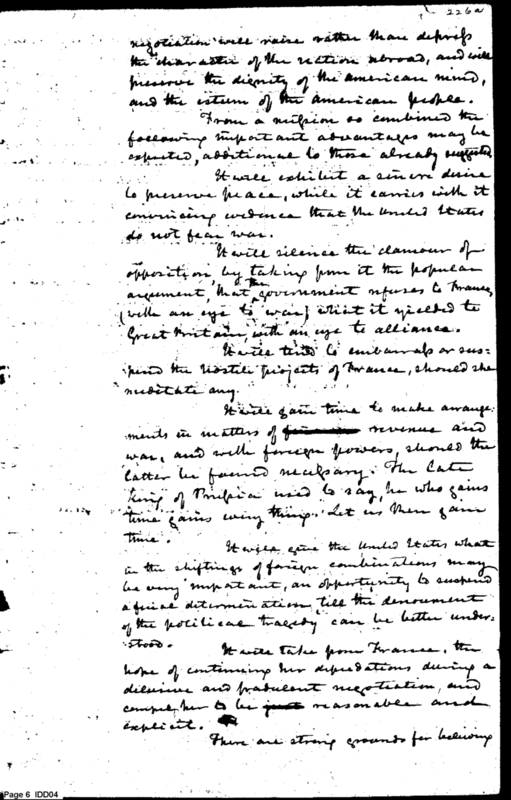 226a
negotiation will raise rather than depress
the character of the nation abroad, and will
preserve the dignity of the american mind,
and the esteem of the american people.
From a mission so combined the
following important advantages may be
expected, additional to those already suggested
It will exhibit a sincere desire
to preserve peace, while it carries with it
convincing evidence that the United States
do not fear war.
It will silence the clamour of
opposition by taking from it the popular
argument, that the government refuses to France,
(with an eye to war) what it yielded to
Great Britain, with an eye to alliance.
It will tend to embarrass or sus=
pend the hostile projects of France, should she
meditate any.
It will gain time to make arrange
ments in matters of revenue and
war, and with foreign powers, should the
latter be found necessary. The late
King of Prussia used to say, he who gains
time gains every thing. Let us then gain
time.
It will give the United States what
in the shiftings of foreign combinations may
be very important, an opportunity to suspend
a final determination, till the denoument
of the political tragedy can be better under=
stood.
It will take from France, the
hope of continuing her depredations during a
delusive and fradulent negotiation, and
compel her to be reasonable and
explicit.
There are strong grounds for believing
Page 6 IDD04